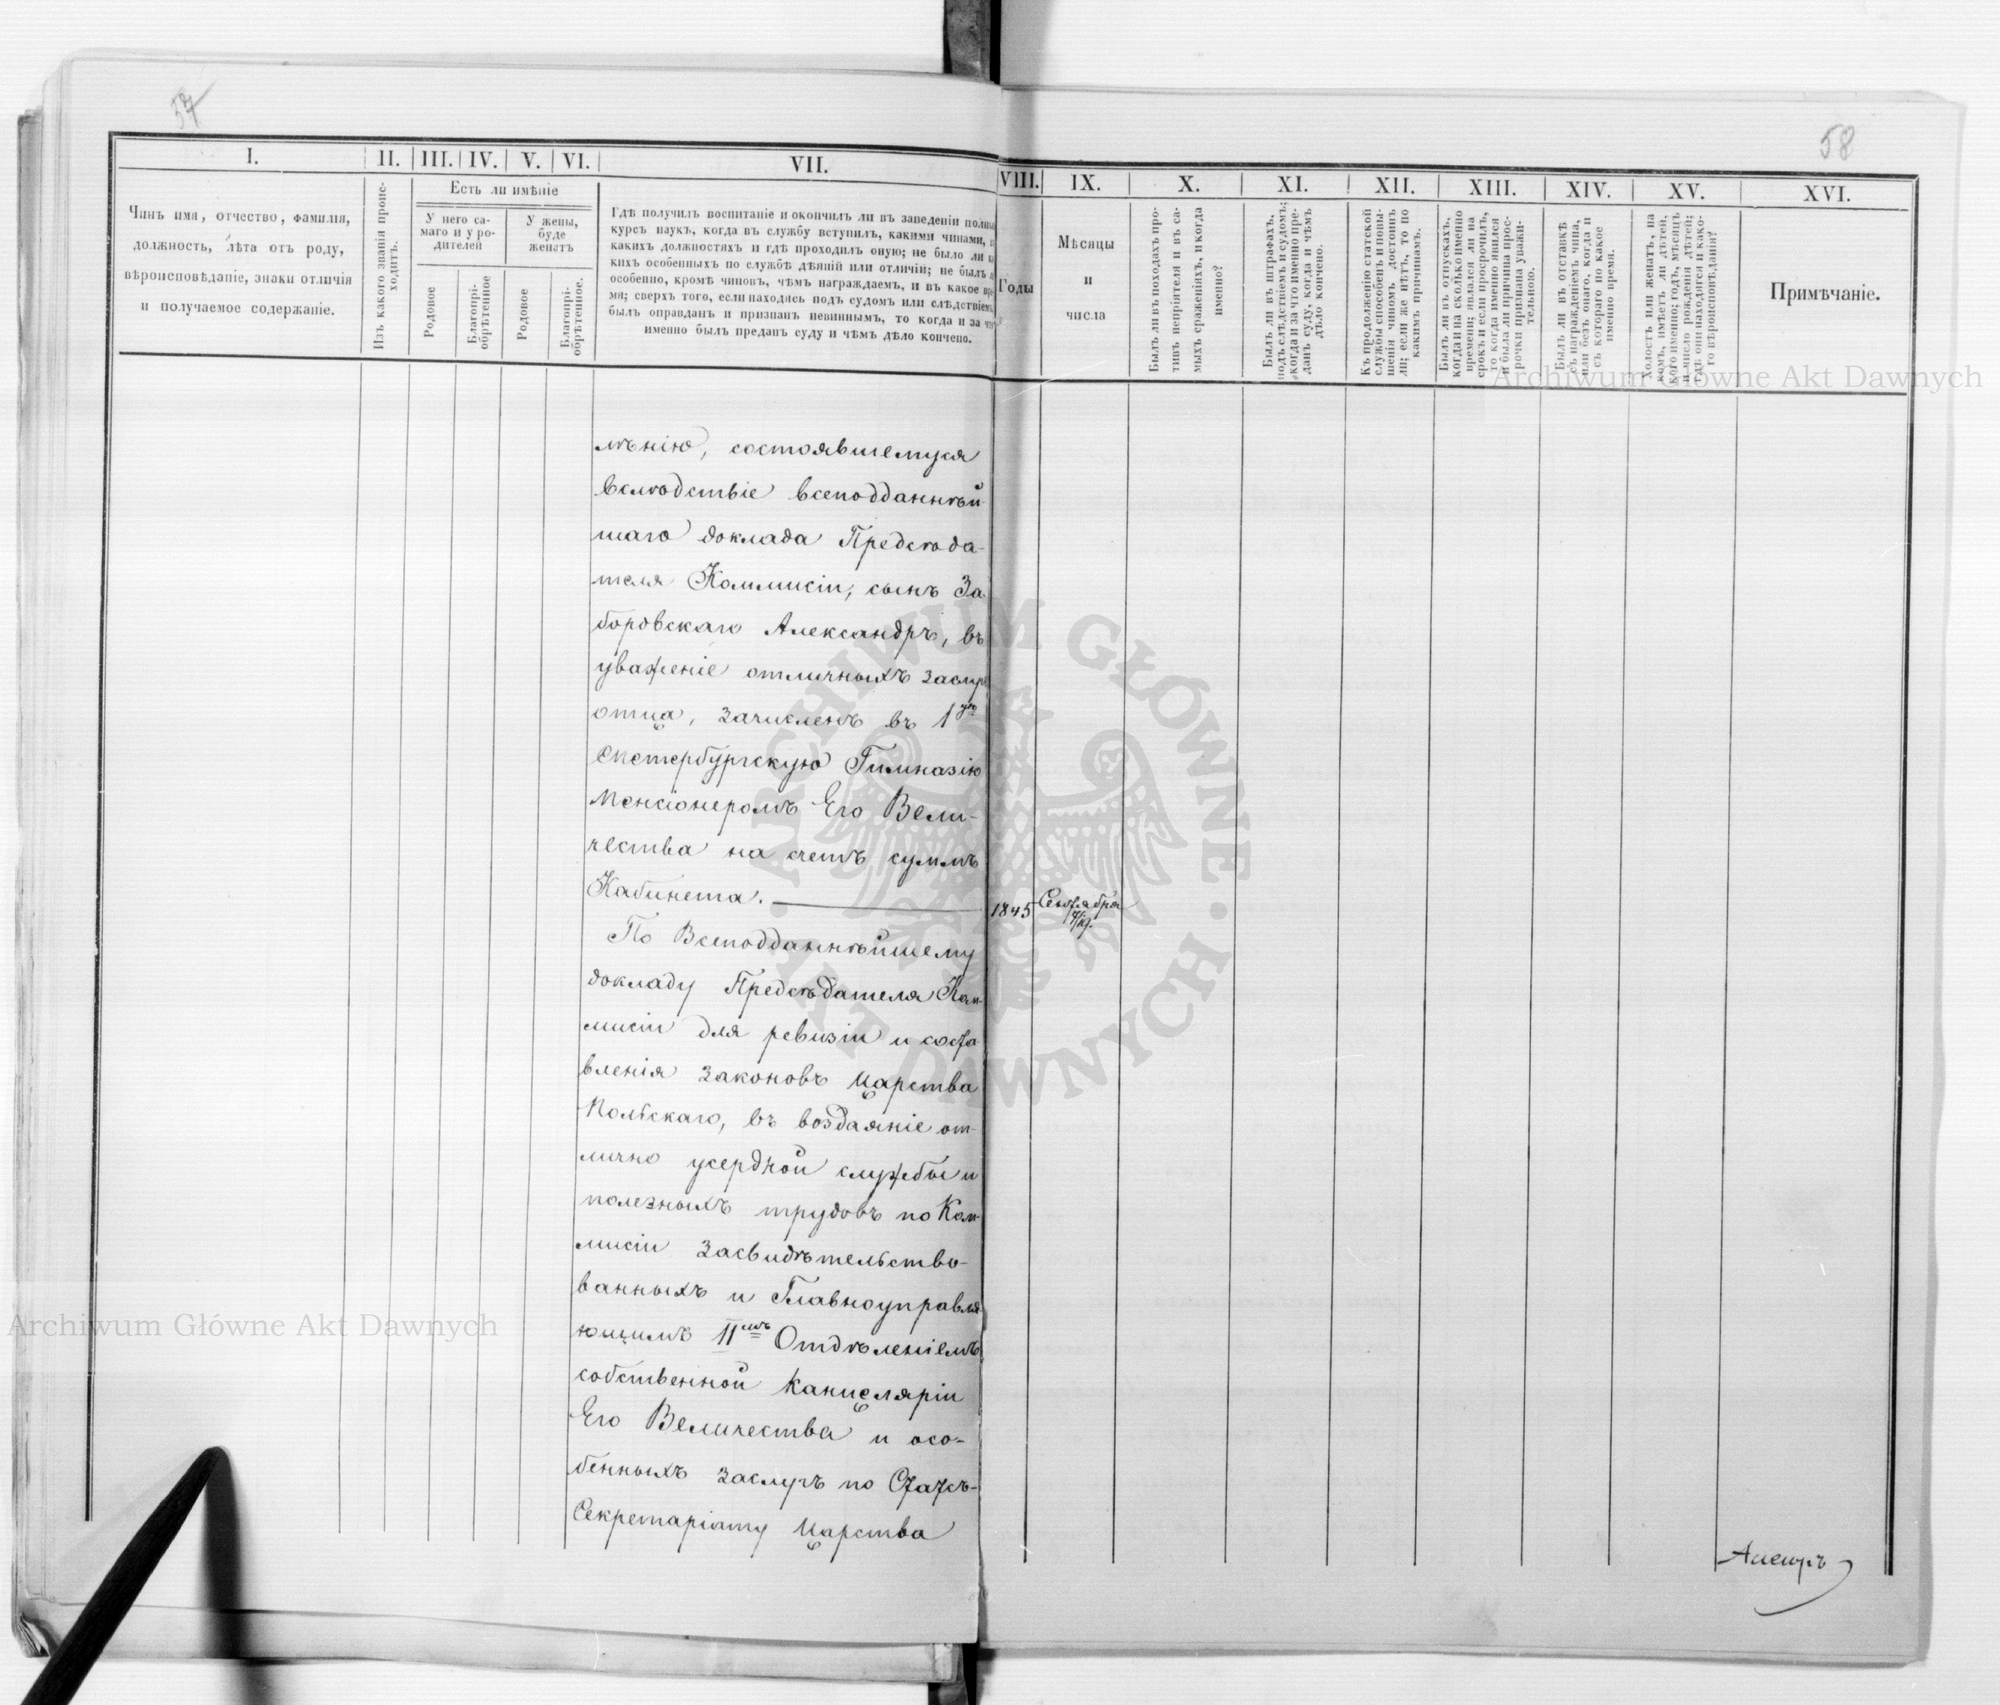 57
58
I.
II.
III.
IV.
V.
VI.
VII.
VIII.
IX.
X.
XI.
XII.
XIII.
XIV.
XV.
XVI.
Чинъ имя, отчество, фамилія,
должность, лѣта отъ роду,
вѣроисповѣданіе, знаки отличія
и получаемое содержаніе.
Изъ какого званія проис-
ходитъ.
Есть ли имѣніе
У него са-
маго и у ро-
дителей
У жены,
буде
женатъ
Родовое
Благопрі-
обрѣтенное
Родовое
Благопрі-
обрѣтенное.
Гдѣ получилъ воспитаніе и окончилъ ли въ заведеніи полный
курсъ наукъ, когда въ службу вступилъ, какими чинами, въ
какихъ должностяхъ и гдѣ проходилъ оную; не было ли ка
кихъ особенныхъ по службѣ дѣяній или отличій; не былъ ли
особенно, кромѣ чиновъ, чѣмъ награждаемъ, и въ какое вре
мя; сверхъ того, если находясь подъ судомъ или слѣдствіемъ,
былъ оправданъ и признанъ невиннымъ, то когда и за что
именно былъ преданъ суду и чѣмъ дѣло кончено.
Годы
Мѣсяцы
и
числа
Былъ ли въ походахъ про-
тивъ непріятеля и въ са-
мыхъ сраженіяхъ, и когда
именно?
Былъ ли въ штрафахъ,
подъ слѣдствіемъ и судомъ;
когда и за что именно пре-
данъ суду, когда и чѣмъ
дѣло кончено.
Къ продолженію статской
службы способенъ и повы-
шенія чиномъ достоинъ
ли; если же нѣтъ, то по
какимъ причинамъ.
Былъ ли въ отпускахъ,
когда и на сколько именно
времени; являлся ли на
срокъ и если просрочилъ,
то когда именно явился
и была ли причина прос-
рочки признана уважи-
тельною.
Былъ ли въ отставкѣ
съ награжденіемъ чина,
или безъ онаго, когда и
съ котораго по какое
именно время.
Холостъ или женатъ, на
комъ, имѣетъ ли дѣтей,
кого именно; годъ, мѣсяцъ
и число рожденія дѣтей;
гдѣ они находятся и како-
го вѣроисповѣданія?
Примѣчаніе.
лѣнію, состоявшемуся
вслѣдствіе всеподданнѣй
шаго доклада Предсѣда-
теля Коммисіи, сынъ За
боровскаго Александръ, въ
уваженіе отличныхъ заслугъ
отца, зачисленъ въ 1ую
Спетербургскую Гимназію
Пенсіонеромъ Его Вели-
чества на счетъ суммъ
Кабинета.
1845
Сентября
7/19.
По Всеподданнѣйшему
докладу Предсѣдателя Ком-
мисіи для ревизіи и соста
вленія законовъ Царства
Польскаго, въ воздаяніе от-
лично усердной службы и
полезныхъ трудовъ по Ком-
мисіи засвидѣтельство-
ванныхъ и Главноуправля-
ющимъ IIмъ Отдѣленіемъ
собственной Канцеляріи
Его Величества и осо-
бенныхъ заслугъ по Статсъ-
Секретаріату Царства
Archiwum Główne Akt Dawnych
Archiwum Główne Akt Dawnych
ARCHIWUM GŁÓWNE AKT DAWNYCH